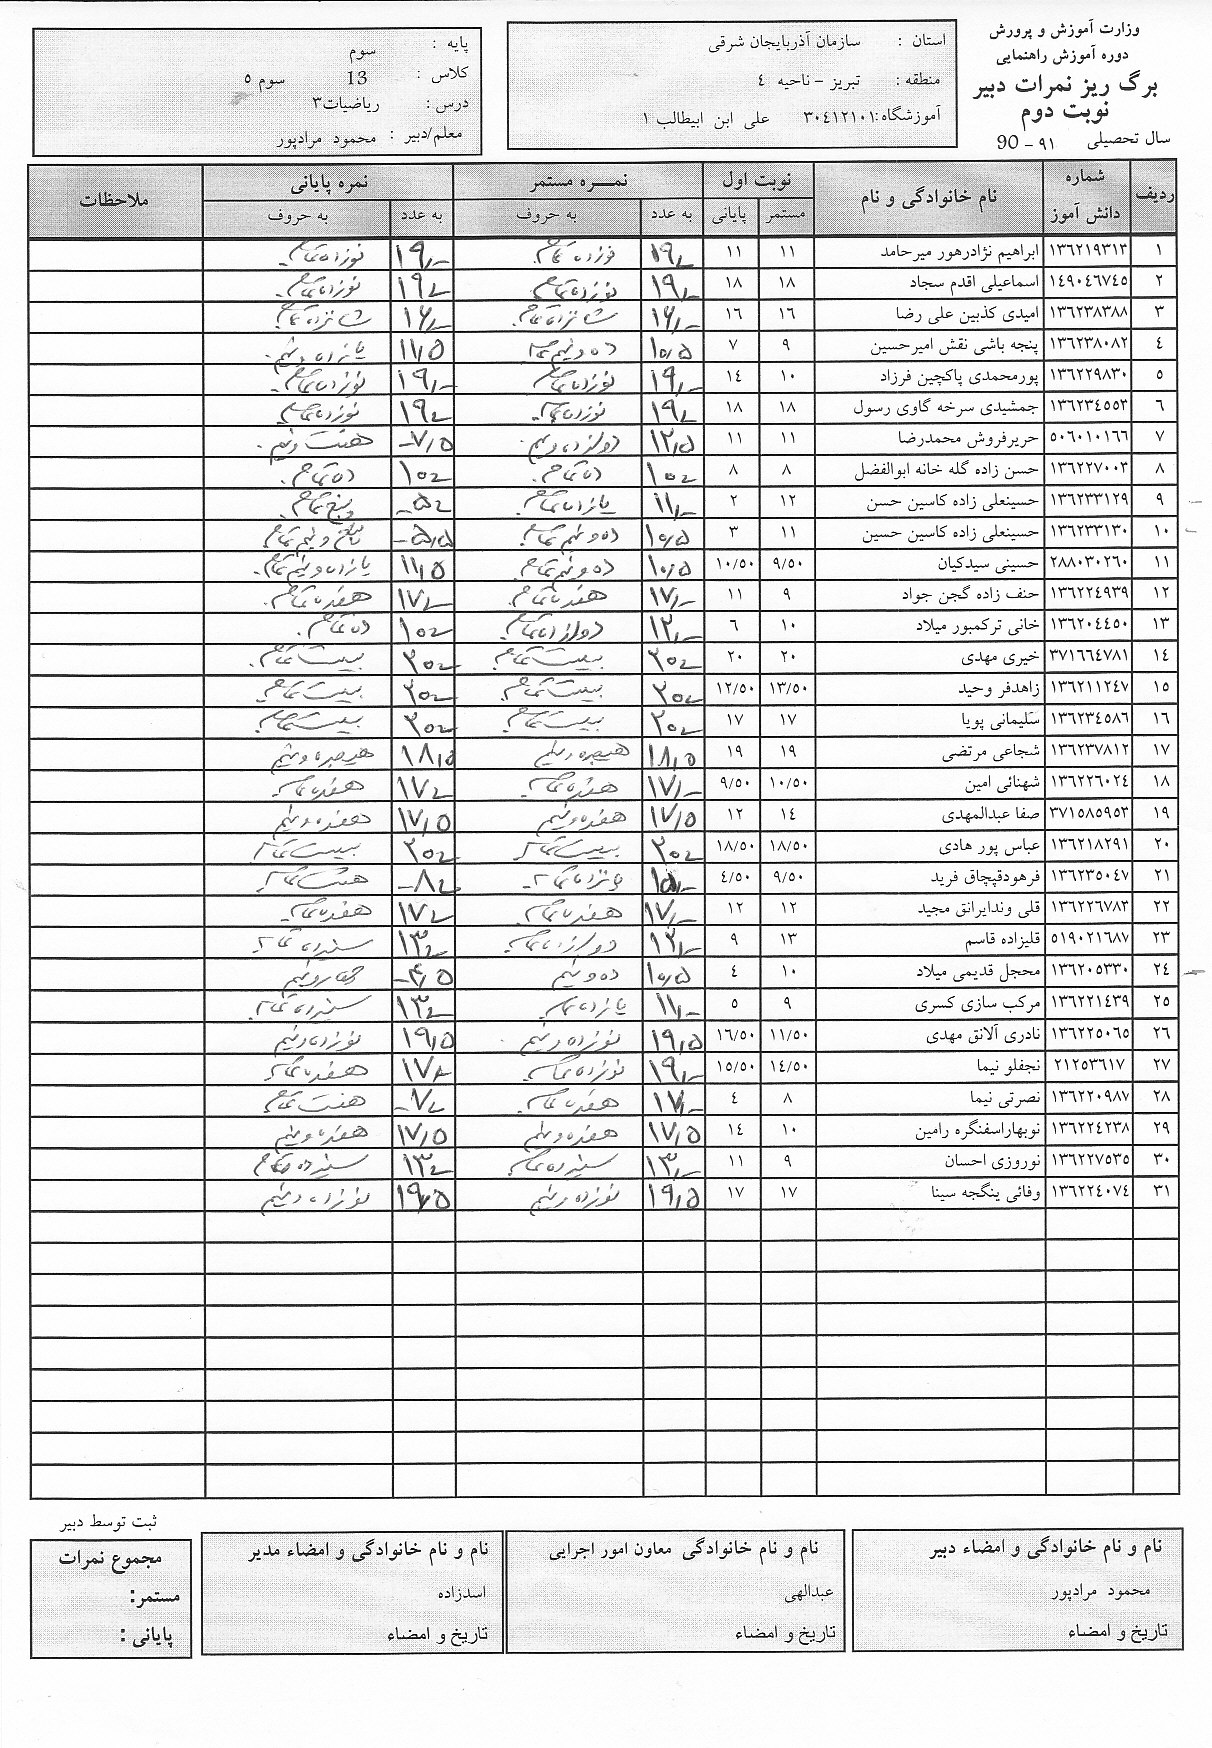 وزارت آموزش و پرورش
دوره آموزش راهنمایی
برگ ریز نمرات دبیر
نوبت دوم
سال تحصیلی ۹۱ - 90
استان : سازمان آذربایجان شرقی
منطقه : تبریز - ناحیه ٤
آموزشگاه: ۳۰٤۱۲۱۰۱ علی ابن ابیطالب ۱
پایه : سوم
کلاس : 13 سوم ٥
درس : ریاضیات۳
معلم/دبیر : محمود مرادپور
ردیف شماره دانش آموز نام خانوادگی و نام نوبت اول نمـــره مستمر نمره پایانی ملاحظات
مستمر پایانی به عدد به حروف به عدد به حروف
۱ ۱۳٦۲۱۹۳۱۳ ابراهیم نژادرهور میرحامد ۱۱ ۱۱ ۱۹/- نوزده تمام ۱۹/- نوزده تمام
۲ ۱٤۹۰٤٦۷٤٥ اسماعیلی اقدم سجاد ۱۸ ۱۸ ۱۹/- نوزده تمام ۱۹/- نوزده تمام
۳ ۱۳٦۲۳۸۳۸۸ امیدی کذبین علی رضا ۱٦ ۱٦ ۱۶/- شانزده تمام ۱۶/- شانزده تمام
٤ ۱۳٦۲۳۸۰۸۲ پنجه باشی نقش امیرحسین ۹ ۷ ۱۰/۵ ده و نیم تمام ۱۱/۵ یازده و نیم
٥ ۱۳٦۲۲۹۸۳۰ پورمحمدی پاکچین فرزاد ۱۰ ۱٤ ۱۹/- نوزده تمام ۱۹/- نوزده تمام
٦ ۱۳٦۲۳٤٥٥۳ جمشیدی سرخه گاوی رسول ۱۸ ۱۸ ۱۹/- نوزده تمام ۱۹/- نوزده تمام
۷ ٥۰٦۰۱۰۱٦٦ حریرفروش محمدرضا ۱۱ ۱۱ ۱۲/۵ دوازده و نیم ۷/۵ هفت و نیم
۸ ۱۳٦۲۲۷۰۰۳ حسن زاده گله خانه ابوالفضل ۸ ۸ ۱۰/- ده تمام ۱۰/- ده تمام
۹ ۱۳٦۲۳۳۱۲۹ حسینعلی زاده کاسین حسن ۱۲ ۲ ۱۱/- یازده تمام ۵/- پنج تمام
۱۰ ۱۳٦۲۳۳۱۳۰ حسینعلی زاده کاسین حسین ۱۱ ۳ ۱۰/۵ ده و نیم تمام ۵/۵ و نیم تمام
۱۱ ۲۸۸۰۳۰۲٦۰ حسینی سیدکیان ۹/٥۰ ۱۰/٥۰ ۱۰/۵ ده و نیم تمام ۱۱/۵ یازده و نیم تمام
۱۲ ۱۳٦۲۲٤۹۳۹ حنف زاده گجن جواد ۹ ۱۱ ۱۷/- هفده تمام ۱۷/- هفده تمام
۱۳ ۱۳٦۲۰٤٤٥۰ خانی ترکمبور میلاد ۱۰ ٦ ۱۲/- دوازده تمام ۱۰/- ده تمام
۱٤ ۳۷۱٦٦٤۷۸۱ خیری مهدی ۲۰ ۲۰ ۲۰/- بیست تمام ۲۰/- بیست تمام
۱٥ ۱۳٦۲۱۱۲٤۷ زاهدفر وحید ۱۳/٥۰ ۱۲/٥۰ ۲۰/- بیست تمام ۲۰/- بیست تمام
۱٦ ۱۳٦۲۳٤٥۸٦ سلیمانی پویا ۱۷ ۱۷ ۲۰/- بیست تمام ۲۰/- بیست تمام
۱۷ ۱۳٦۲۳۷۸۱۲ شجاعی مرتضی ۱۹ ۱۹ ۱۸/۵ هیجده و نیم ۱۸/۵ هیجده و نیم
۱۸ ۱۳٦۲۲٦۰۲٤ شهنائی امین ۱۰/٥۰ ۹/٥۰ ۱۷/- هفده تمام ۱۷/- هفده تمام
۱۹ ۳۷۱٥۸٥۹٥۳ صفا عبدالمهدی ۱٤ ۱۲ ۱۷/۵ هفده و نیم ۱۷/۵ هفده و نیم
۲۰ ۱۳٦۲۱۸۲۹۱ عباس پور هادی ۱۸/٥۰ ۱۸/٥۰ ۲۰/- بیست تمام ۲۰/- بیست تمام
۲۱ ۱۳٦۲۳٥۰٤۷ فرهودقپچاق فرید ۹/٥۰ ٤/٥۰ ۱۵/- پانزده تمام ۸/- هشت تمام
۲۲ ۱۳٦۲۲٦۷۸۳ قلی وندایرانق مجید ۱۲ ۱۲ ۱۷/- هفده تمام ۱۷/- هفده تمام
۲۳ ٥۱۹۰۲۱٦۸۷ قلیزاده قاسم ۱۳ ۹ ۱۲/- دوازده تمام ۱۳/- سیزده تمام
۲٤ ۱۳٦۲۰٥۳۳۰ محجل قدیمی میلاد ۱۰ ٤ ۱۰/۵ ده و نیم ۴/۵ چهار و نیم
۲٥ ۱۳٦۲۲۱٤۳۹ مرکب سازی کسری ۹ ٥ ۱۱/- یازده تمام ۱۳/- سیزده تمام
۲٦ ۱۳٦۲۲٥۰٦٥ نادری آلانق مهدی ۱۱/٥۰ ۱٦/٥۰ ۱۹/۵ نوزده و نیم ۱۹/۵ نوزده و نیم
۲۷ ۲۱۲٥۳٦۱۷ نجفلو نیما ۱٤/٥۰ ۱٥/٥۰ ۱۹/- نوزده تمام ۱۷/- هفده تمام
۲۸ ۱۳٦۲۲۰۹۸۷ نصرتی نیما ۸ ٤ ۱۷/- هفده تمام ۷/- هفت تمام
۲۹ ۱۳٦۲۲٤۲۳۸ نوبهاراسفنگره رامین ۱۰ ۱٤ ۱۷/۵ هفده و نیم ۱۷/۵ هفده و نیم
۳۰ ۱۳٦۲۲۷٥۳٥ نوروزی احسان ۹ ۱۱ ۱۳/- سیزده تمام ۱۳/- سیزده تمام
۳۱ ۱۳٦۲۲٤۰۷٤ وفائی ینگجه سینا ۱۷ ۱۷ ۱۹/۵ نوزده و نیم ۱۹/۵ نوزده و نیم
نام و نام خانوادگی و امضاء دبیر
محمود مرادپور
تاریخ و امضاء
نام و نام خانوادگی معاون امور اجرایی
عبدالهی
تاریخ و امضاء
نام و نام خانوادگی و امضاء مدیر
اسدزاده
تاریخ و امضاء
ثبت توسط دبیر
مجموع نمرات
مستمر:
پایانی :